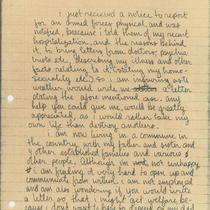 I just recieved a notice to report
for an armed forces physical, and was
notified, because I told them of my recent
hospitalization, and the reasons behind
it, to bring letters from doctors, psychia-
trists etc. describing my illness and other
facts relating to it (stating my homo-
sexuality etc.) So I am inquiring as to
weather would write me a letter
stating the afore mentioned case. Any
help you could give me, would be greatly
appreciated, as I would rather take my
own life than destroy another.
I am now living in a commune in
the country, with my father and sister and
other established families and various
other people. Although I'm not unhappy
I am finding it very hard to open up and
communicate from within. I am not employed
and am also wondering if you would write
a letter so, that I might get welfare, be-
cause I don't want to have to depend on my dad